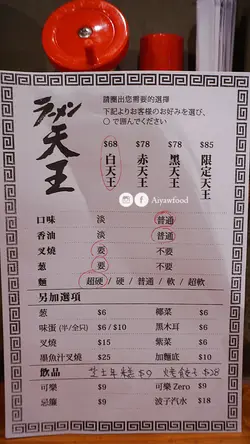 ラーメン
天王
請圈出您需要的選擇
下記よりお客様のお好みを選び、
○で囲んでください
$68 $78 $78 $85
白天王 赤天王 黑天王 限定天王
Aiyawfood
口味 淡 普通
香油 淡 普通
叉燒 要 不要
葱 要 不要
麵 超硬 / 硬 / 普通 / 軟 / 超軟
另加選項
葱 $6 椰菜 $6
味蛋 (半/全只) $6 / $10 黑木耳 $6
叉燒 $15 紫菜 $6
墨魚汁叉燒 $25 加麵底 $10
飲品 $9 燒餃子 $28
可樂 $9 可樂 Zero $9
忌廉 $9 波子汽水 $18